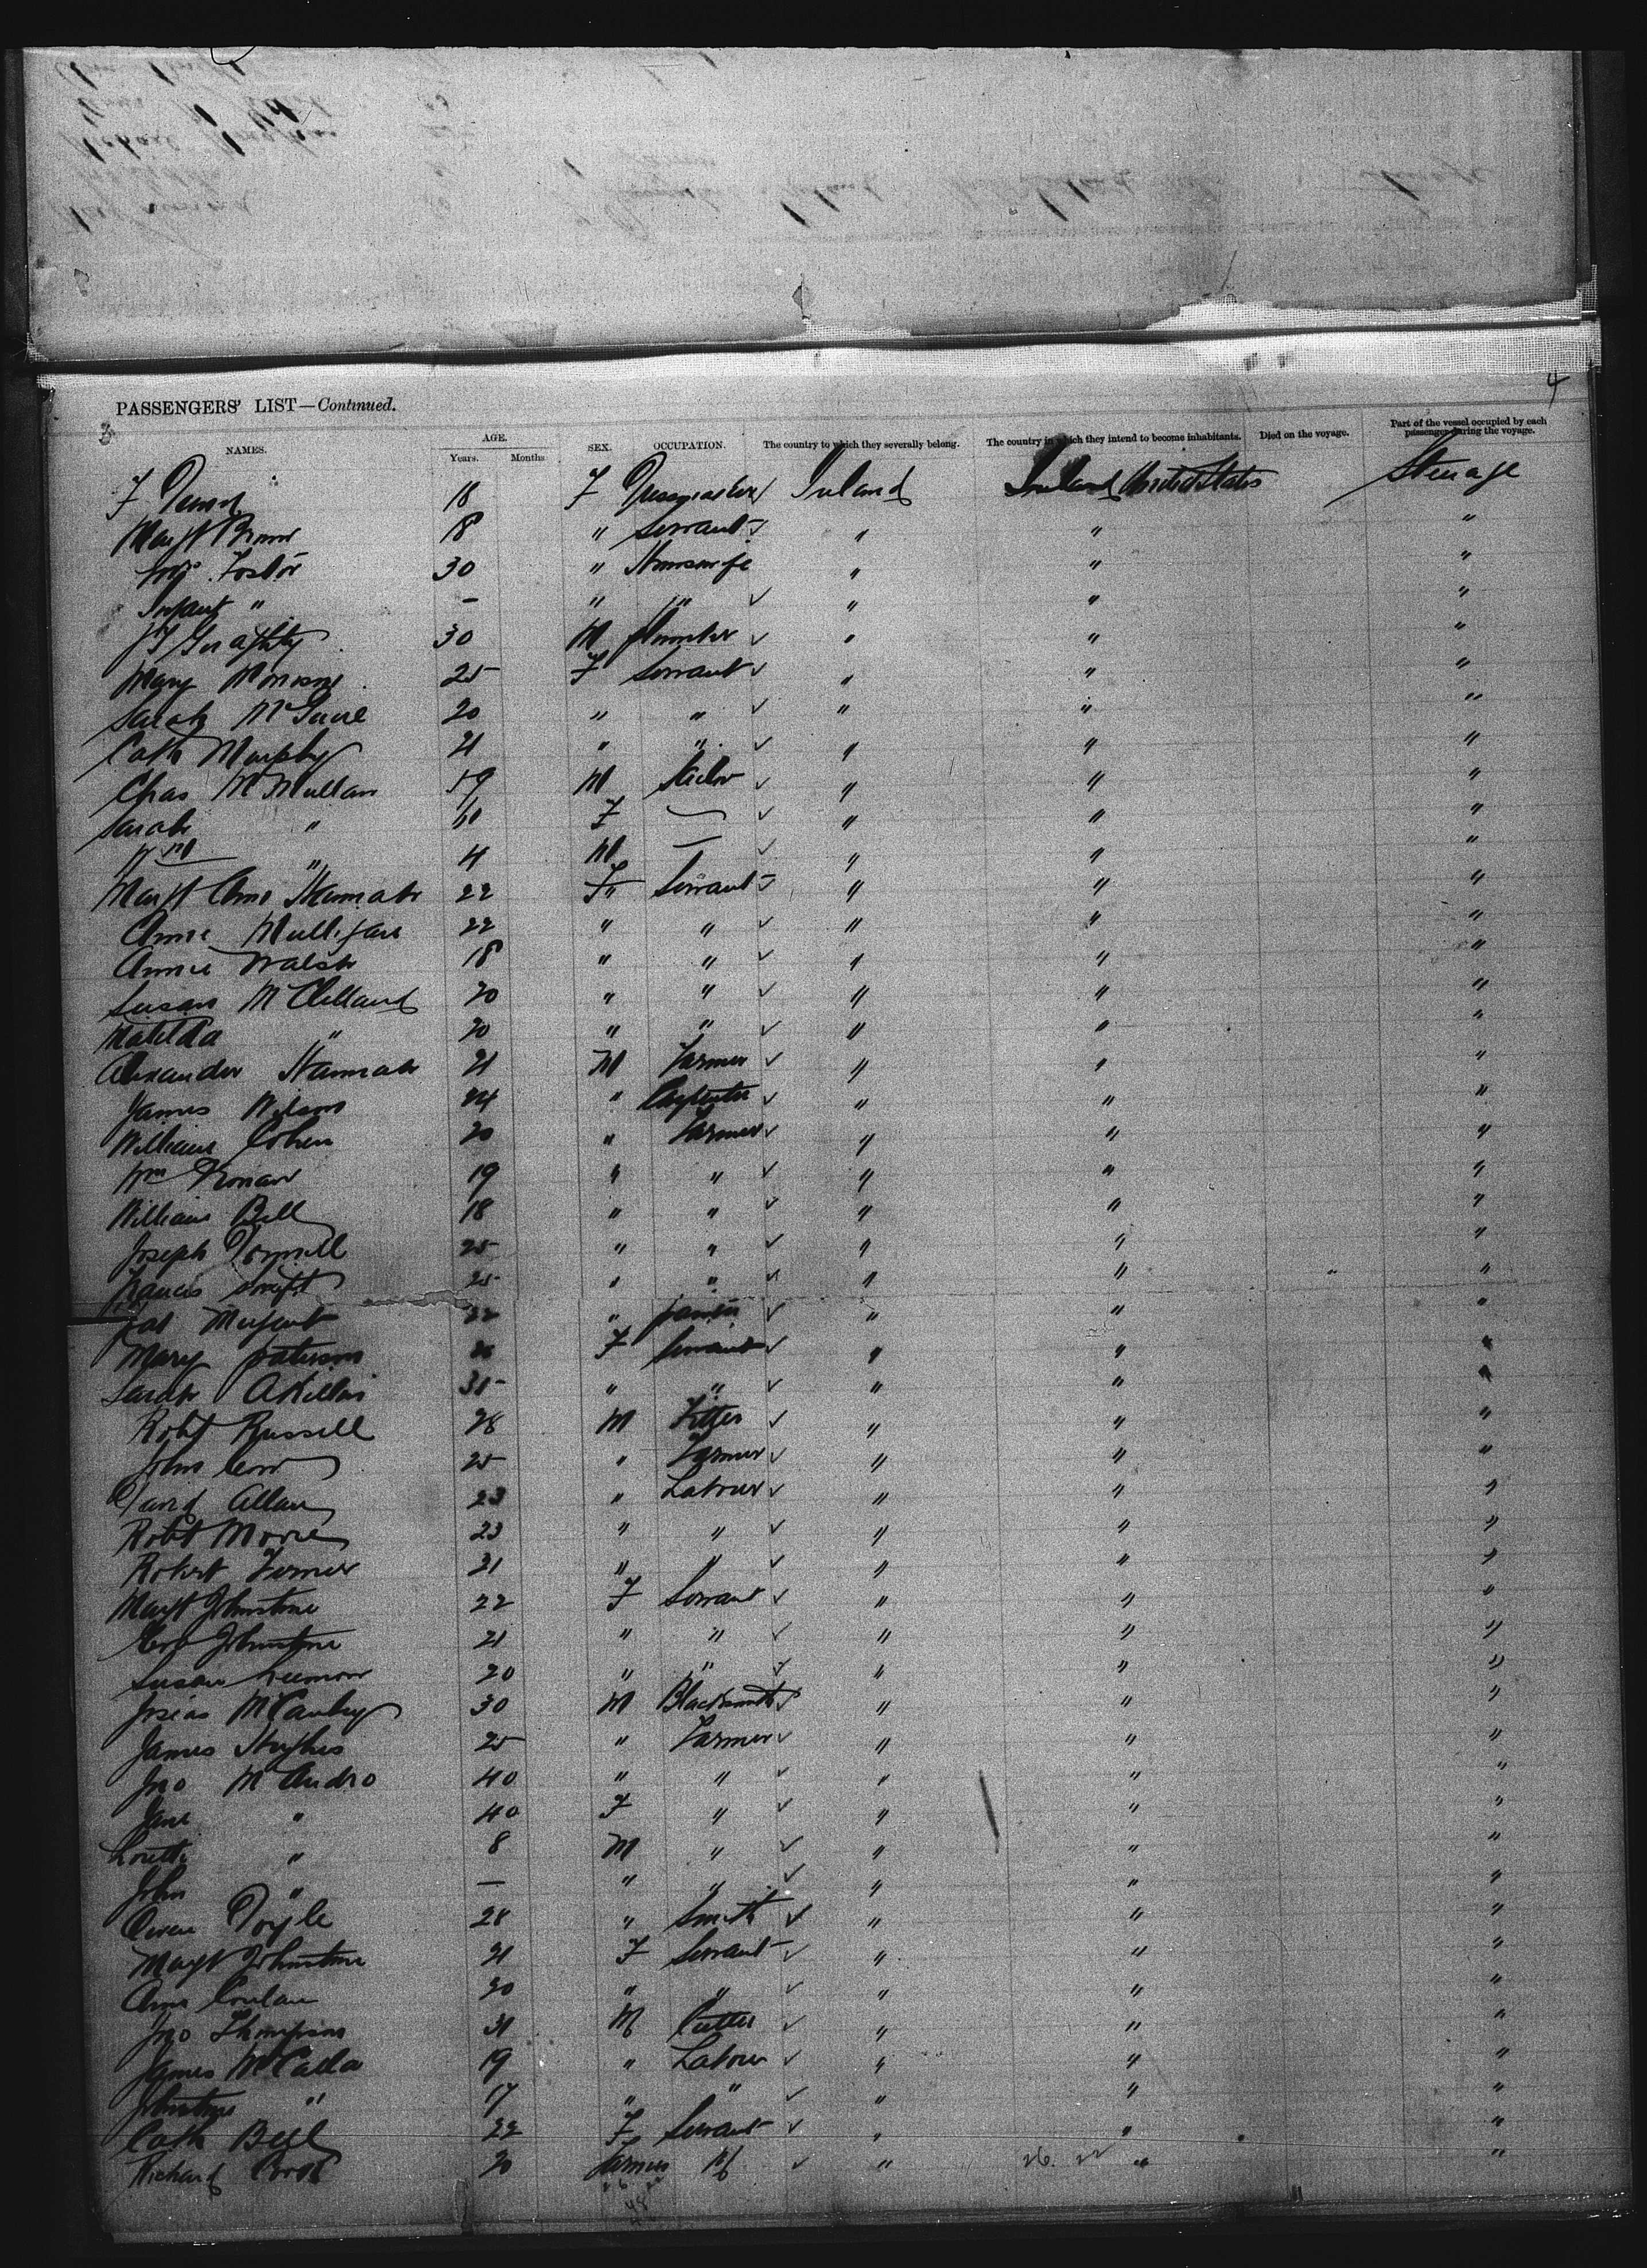 4
PASSENGERS' LIST—Continued.
NAMES. AGE. Years. Months. SEX. OCCUPATION. The country to which they severally belong. The country in which they intend to become inhabitants. Died on the voyage. Part of the vessel occupied by each passenger during the voyage.
F 18 F Dressmaker Ireland Ireland United States Steerage
Margt Brown 18 " Servant " " "
Mrs. Foster 30 " Housewife " " "
Infant " — " " " " "
Geraghty 30 M plumber " " "
Mary 25 F Servant " " "
Sarah McGuire 20 " " " " "
Cath Murphy 21 " " " " "
Chas McMullan 59 M Sailor " " "
Sarah " F — " " "
Wm " 4 M — " " "
Margt Ann Hannah 22 F" Servant " " "
Annie Mulligan 22 " " " " "
Annie Walsh 18 " " " " "
Susan McClelland 20 " " " " "
Matilda " 20 " " " " "
Alexander Hannah 21 M Farmer " " "
James Wilson 24 " Carpenter " " "
William Cohen 20 " Farmer " " "
Wm 19 " " " " "
William Bell 18 " " " " "
Joseph 25 " " " " "
Francis Swift 25 " " " " "
22 " " " "
Mary Paterson 26 F Servant " " "
Sarah 35 " " " " "
Robt Russell 28 M Fitter " " "
John 25 " Farmer " " "
David Allan 23 " Labour " " "
Robt Moore 23 " " " " "
Robert 21 " " " " "
Margt Johnstone 22 F Servant " " "
Johnstone 21 " " " " "
Susan 20 " " " " "
Josias 30 M Blacksmith " " "
James Hughes 25 " Farmer " " "
Jno McAndro 40 " " " " "
Jane " 40 F " " " "
" 8 M " " " "
John " — " " " " "
Owen Doyle 28 " Smith " " "
Margt Johnstone 21 F Servant " " "
Ann Conlan 20 " " " " "
Jno Thompson 31 M Cutter " " "
James McCalla 19 " Labour " " "
Johnstone " 17 " " " " "
Cath Bell 22 F Servant " " "
Richard 20 Farmer M " 26. 22 " "
26 22
48